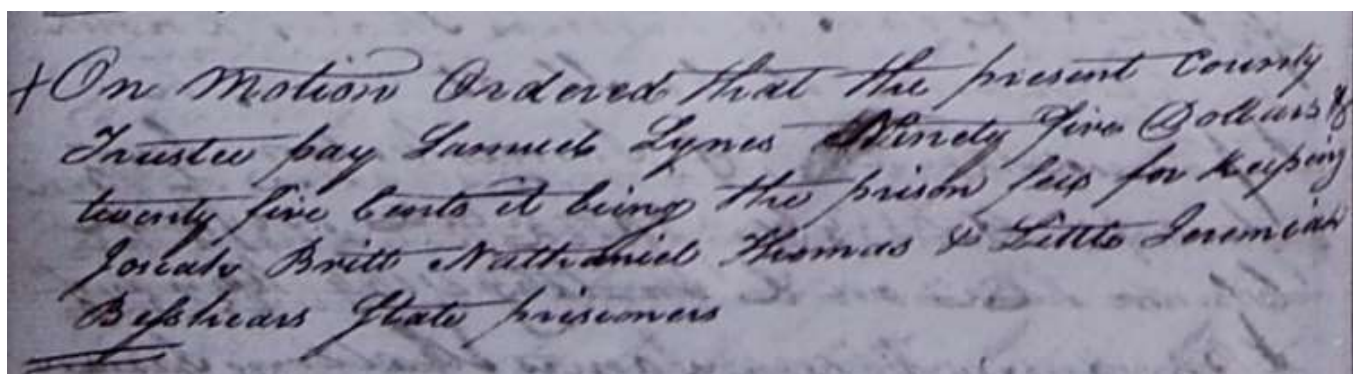 + On Motion Ordered that the present County
Trustee pay Samuel Lynes Ninety five Dollars &
twenty five Cents it being the prison fees for keeping
Josiah Britt Nathaniel Thomas & Little Jeremiah
Beshears State prisoners